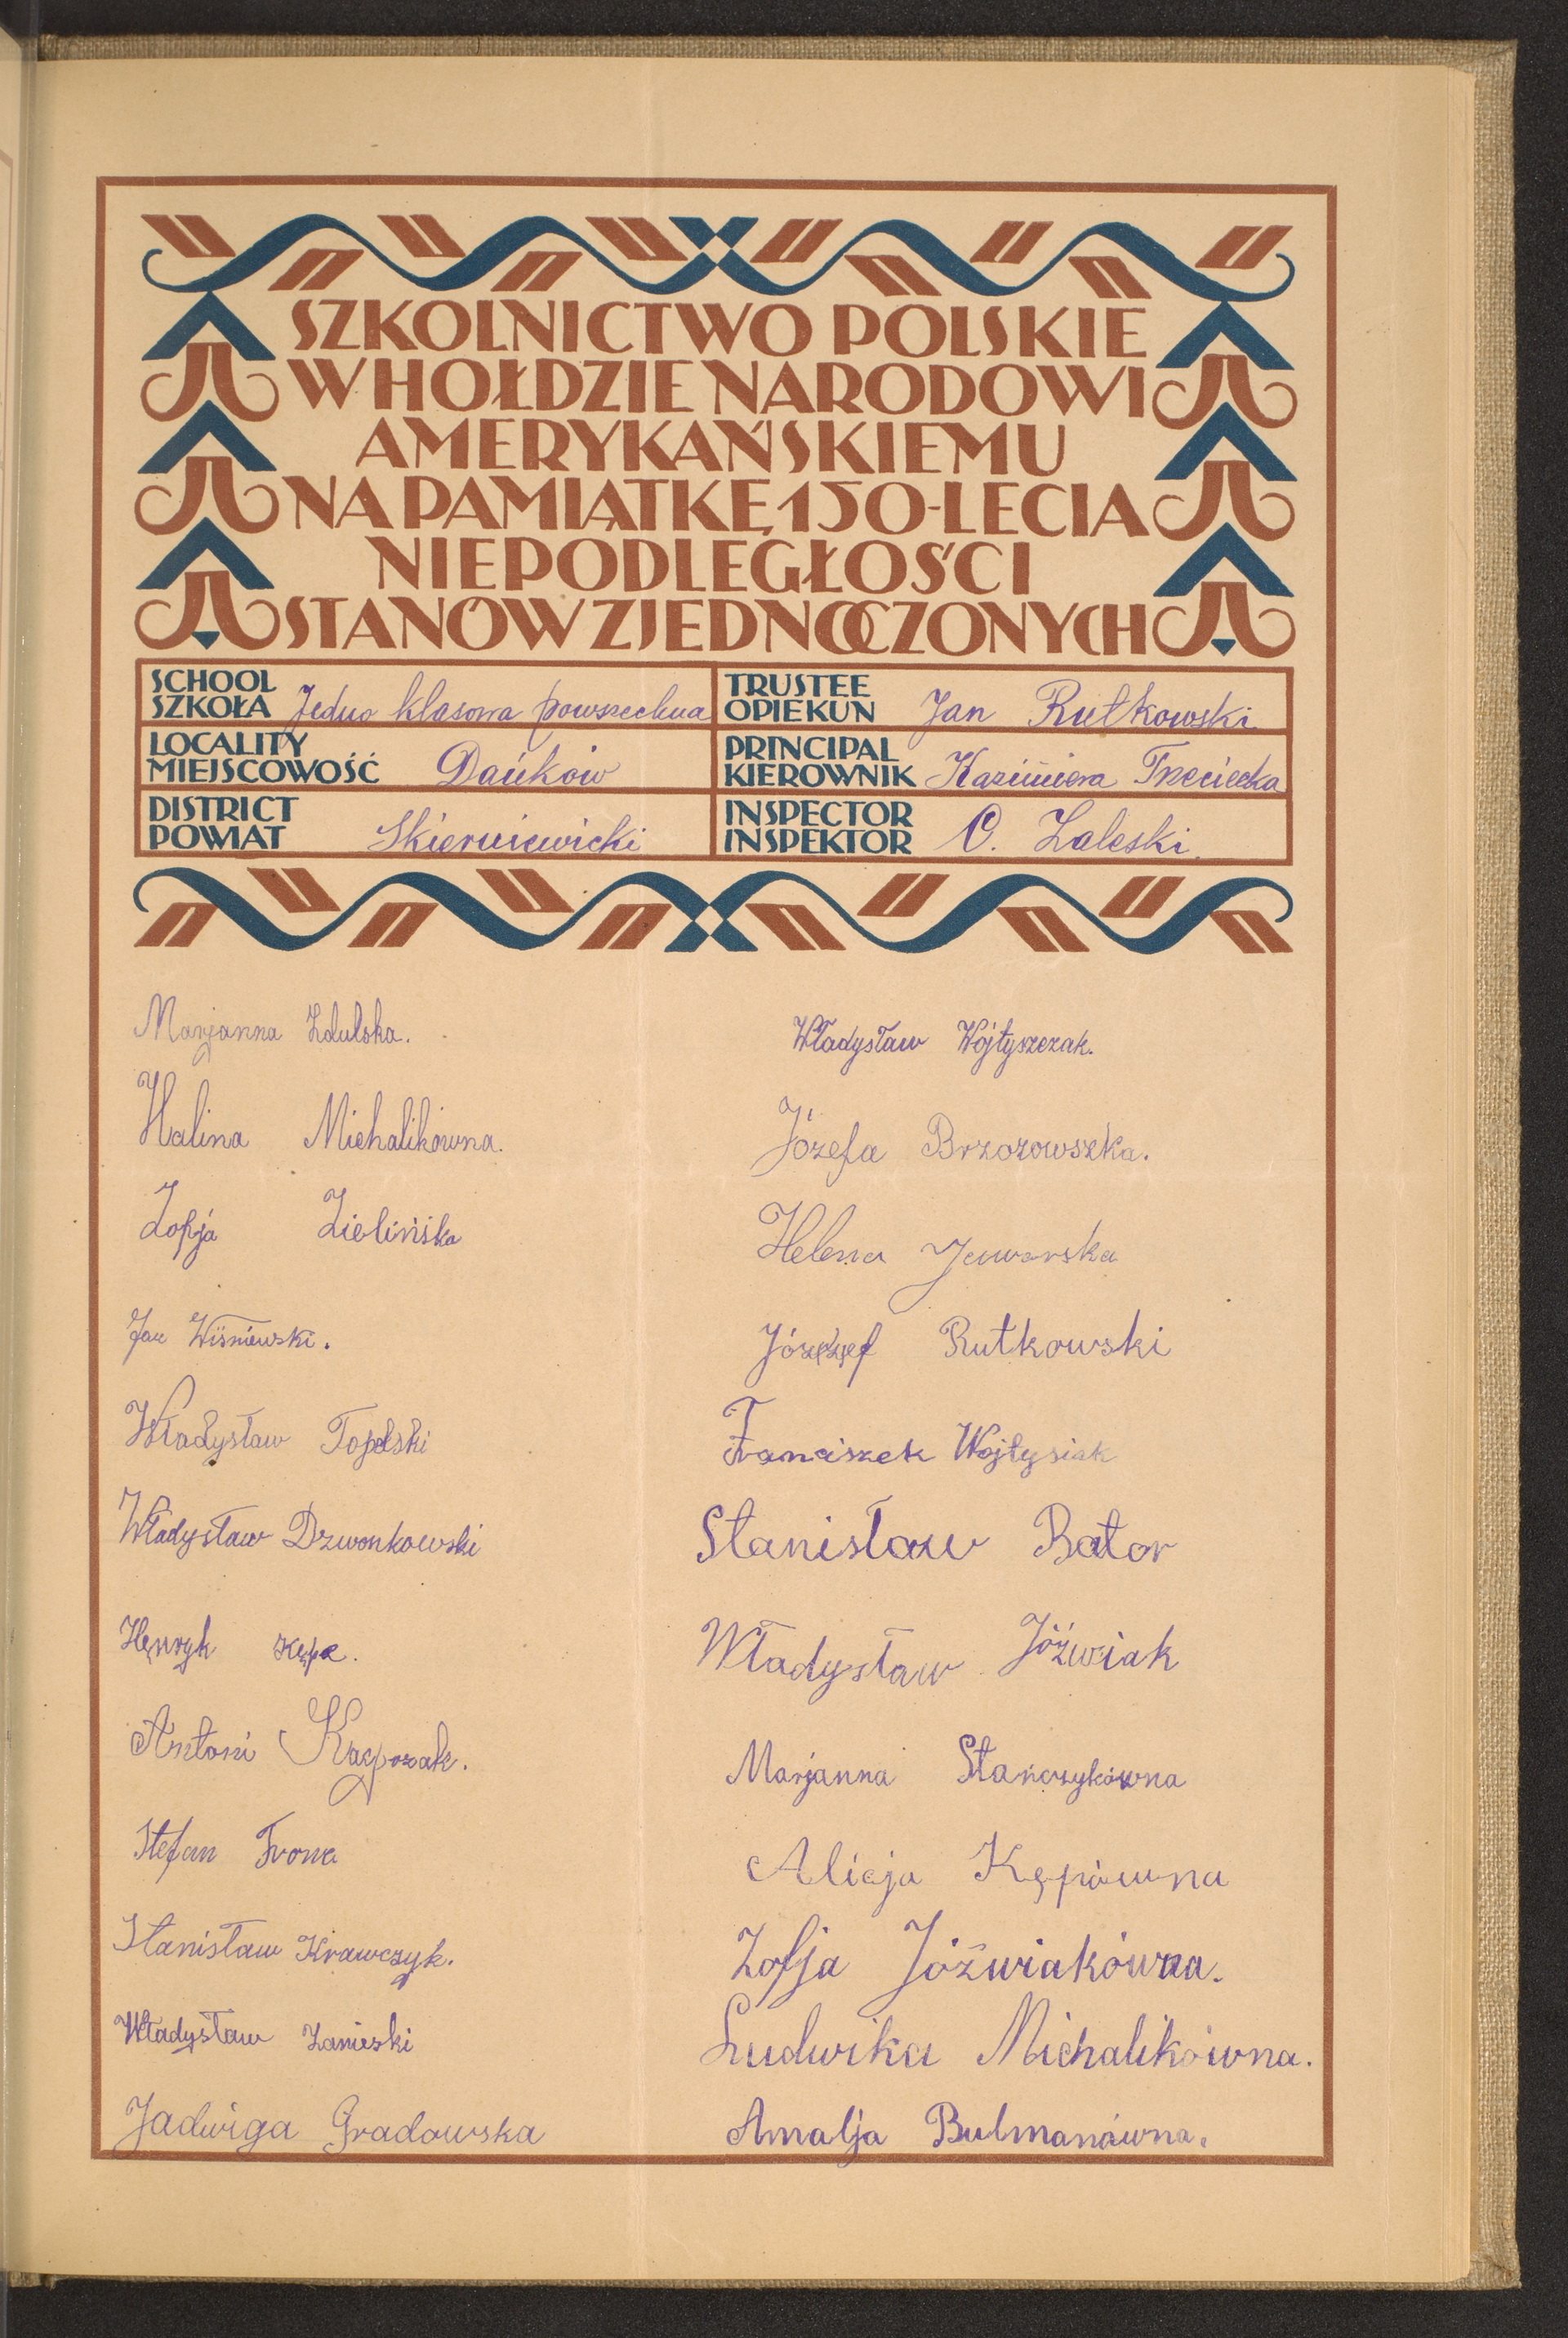 SZKOLNICTWO POLSKIE
W HOŁDZIE NARODOWI
AMERYKAŃSKIEMU
NA PAMIĄTKĘ 150-LECIA
NIEPODLEGŁOŚCI
STANÓW ZJEDNOCZONYCH
SCHOOL
SZKOŁA Jedno klasowa powszechna
LOCALITY
MIEJSCOWOŚĆ Dańków
DISTRICT
POWIAT Skierniewicki
TRUSTEE
OPIEKUN Jan Rutkowski
PRINCIPAL
KIEROWNIK Kazimiera Trzeciecka
INSPECTOR
INSPEKTOR O. Zaleski
Marjanna Zdulska.
Halina Michalikówna.
Zofja Zielińska
Jan Wiśniewski.
Władysław Topolski
Władysław Dzwonkowski
Henryk Kępa.
Antoni Kacprzak.
Stefan Frona
Stanisław Krawczyk.
Władysław
Jadwiga Gradowska
Władysław Wójtyszczak.
Józefa Brzozowszka.
Helena Jaworska
Józef Rutkowski
Franciszek Wojtysiak
Stanisław Bator
Władysław Jóźwiak
Marjanna Stańczykówna
Alicja Kępiówna
Zofja Jóźwiakówna.
Ludwika Michalikówna.
Amalja Bulmanówna.